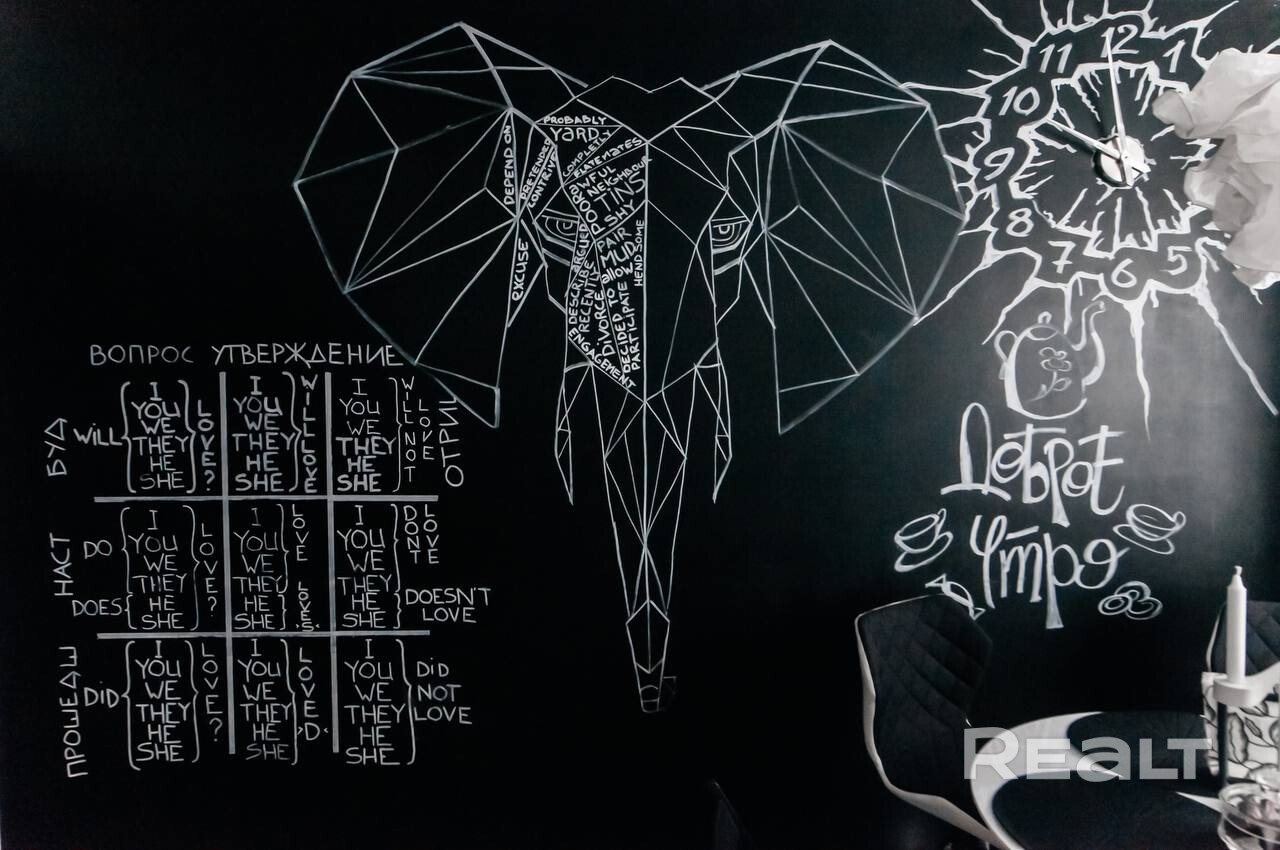 PROBABLY
YARD
COMPLETLY
DEPEND ON
PRETENDED
CONTRIVE
FLATEMATES
AWFUL
NEIGHBOUR
TINS
POOR
SHY
PAIR
MUD
HENDSOME
ARGUED
EXCUSE
DESCRIBE
RECENTLY
DIVORCE
DECIDED TO allow
PARTICIPATE
ENGAGEMENT
11 12 1
10
9
8
7 6 5
Доброе
Утро
ВОПРОС УТВЕРЖДЕНИЕ
ОТРИЦ
БУД
WILL
I
YOU
WE
THEY
HE
SHE
LOVE?
I
YOU
WE
THEY
HE
SHE
WILL LOVE
I
YOU
WE
THEY
HE
SHE
WILL NOT
LOVE
НАСТ
DO
DOES
I
YOU
WE
THEY
HE
SHE
LOVE?
I
YOU
WE
THEY
HE
SHE
LOVE
LOVE,S,
I
YOU
WE
THEY
HE
SHE
DONT
LOVE
DOESN'T
LOVE
ПРОШЕДШ
DiD
I
YOU
WE
THEY
HE
SHE
LOVE?
I
YOU
WE
THEY
HE
SHE
LOVE,D,
I
YOU
WE
THEY
HE
SHE
DiD
NOT
LOVE
REALT